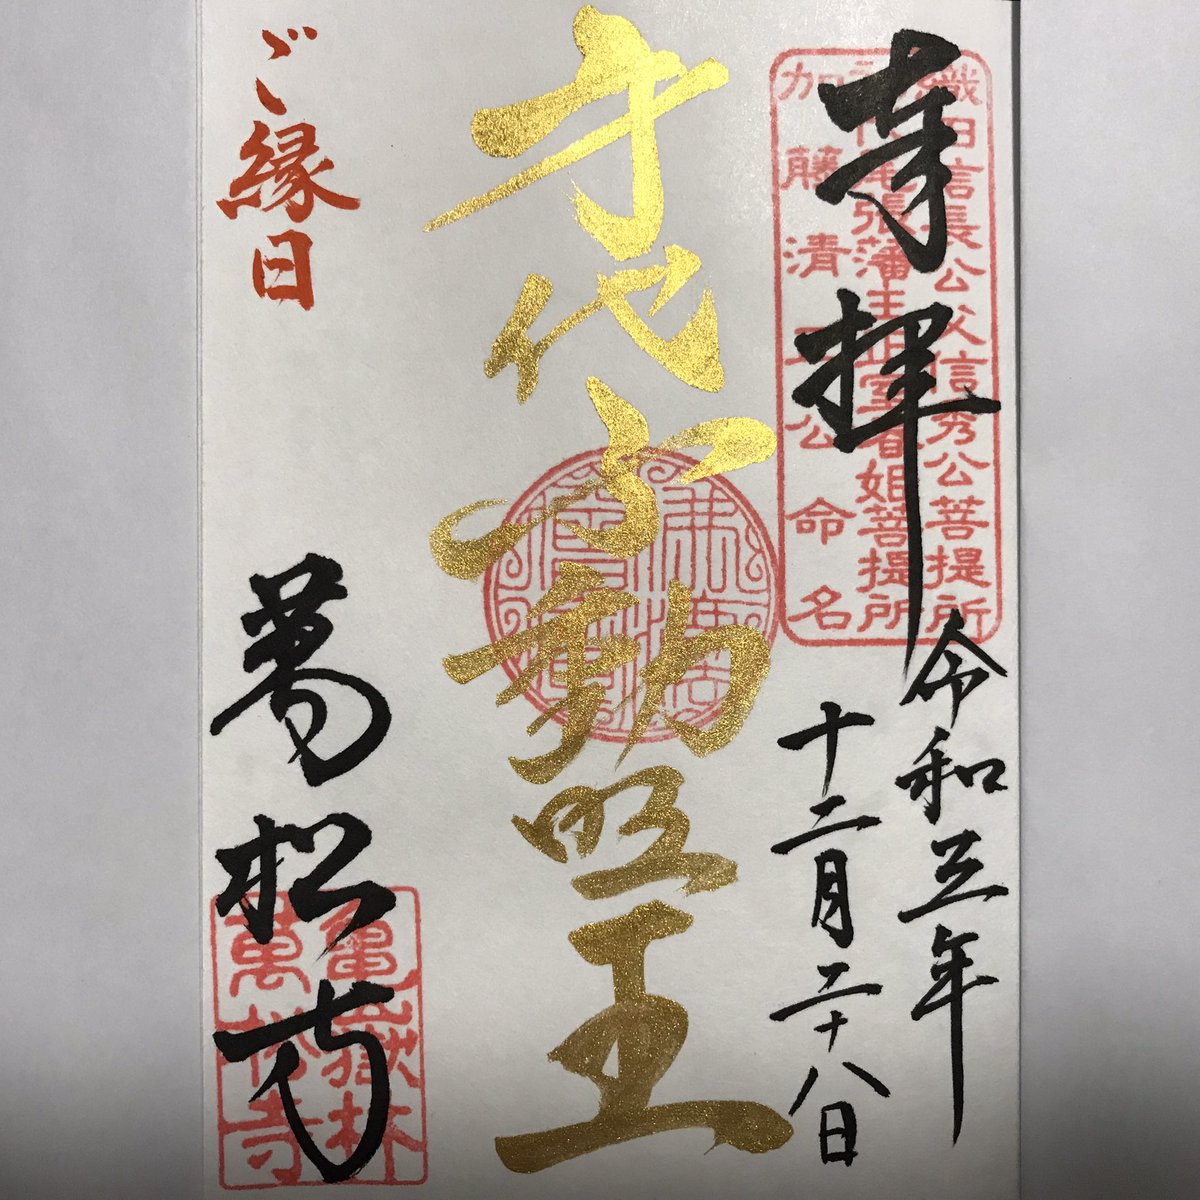 奉拝
織田信長公父信秀公菩提所
初代尾張藩主正室春姫菩提所
加藤清正公命名
令和三年
十二月二十八日
身代不動明王
ご縁日
萬松寺
亀嶽林
萬松寺